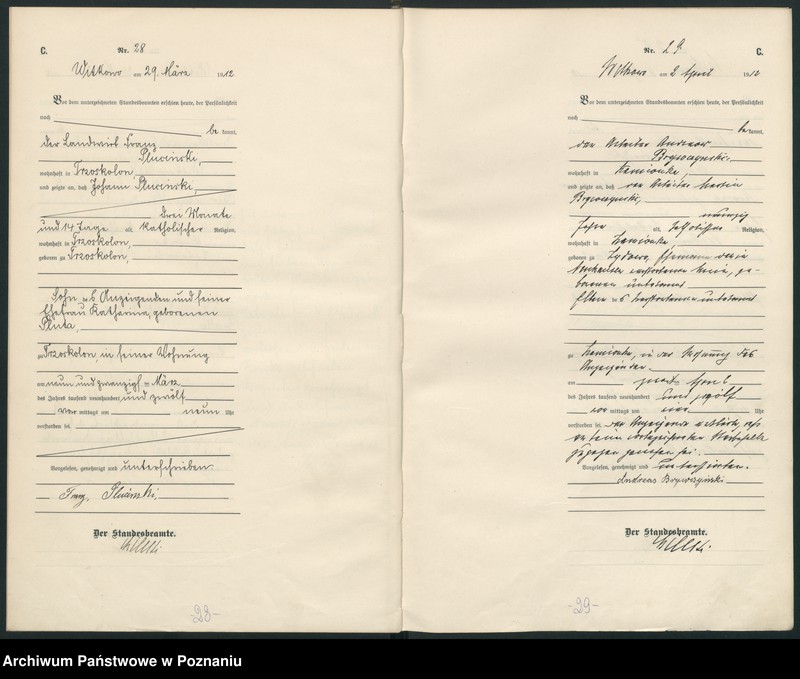 C.
Nr. 28
Witkowo am 29. März 1912
Vor dem unterzeichneten Standesbeamten erschien heute, der Persönlichkeit
nach
be kannt,
der Landwirt Franz
Plucinski,
wohnhaft in Trzoskolon,
und zeigte an, daß Johann Plucinski,
drei Monate
und 14 Tage alt, katholischer Religion,
wohnhaft in Trzoskolon,
geboren zu Trzoskolon,
Sohn des Anzeigenden und seiner
Ehefrau Katharina, geborenen
Pluta,
zu Trzoskolon, in seiner Wohnung
am neun und zwanzigsten März
des Jahres tausend neunhundert und zwölf
vor mittags um neun Uhr
verstorben sei.
Vorgelesen, genehmigt und unterschrieben
Franz Plucinski,
Der Standesbeamte.
-28-
Nr. 29.
C.
Witkowo am 2. April 1912
Vor dem unterzeichneten Standesbeamten erschien heute, der Persönlichkeit
nach
be kannt,
der Arbeiter Andreas
wohnhaft in Kamionka,
und zeigte an, daß der Arbeiter Martin
neunzig
Jahre alt, katholischer Religion,
wohnhaft in Kamionka
geboren zu Ehemann der in
verstorbenen ge-
borenen unbekannt
Eltern des Verstorbenen unbekannt
zu Kamionka, in der Wohnung des
Anzeigenden
am zweiten April
des Jahres tausend neunhundert und zwölf
vor mittags um vier Uhr
verstorben sei. Der Anzeigende erklärte, daß
er beim vorbezeichneten Sterbefalle
zugegen gewesen sei.
Vorgelesen, genehmigt und unterschrieben.
Andreas
Der Standesbeamte.
-29-
Archiwum Państwowe w Poznaniu